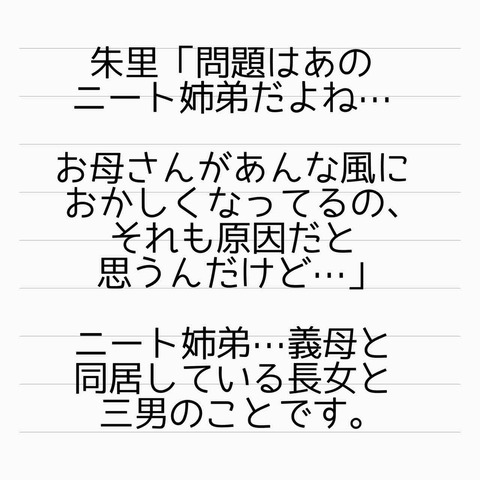 朱里「問題はあの
ニート姉弟だよね…
お母さんがあんな風に
おかしくなってるの、
それも原因だと
思うんだけど…」
ニート姉弟…義母と
同居している長女と
三男のことです。